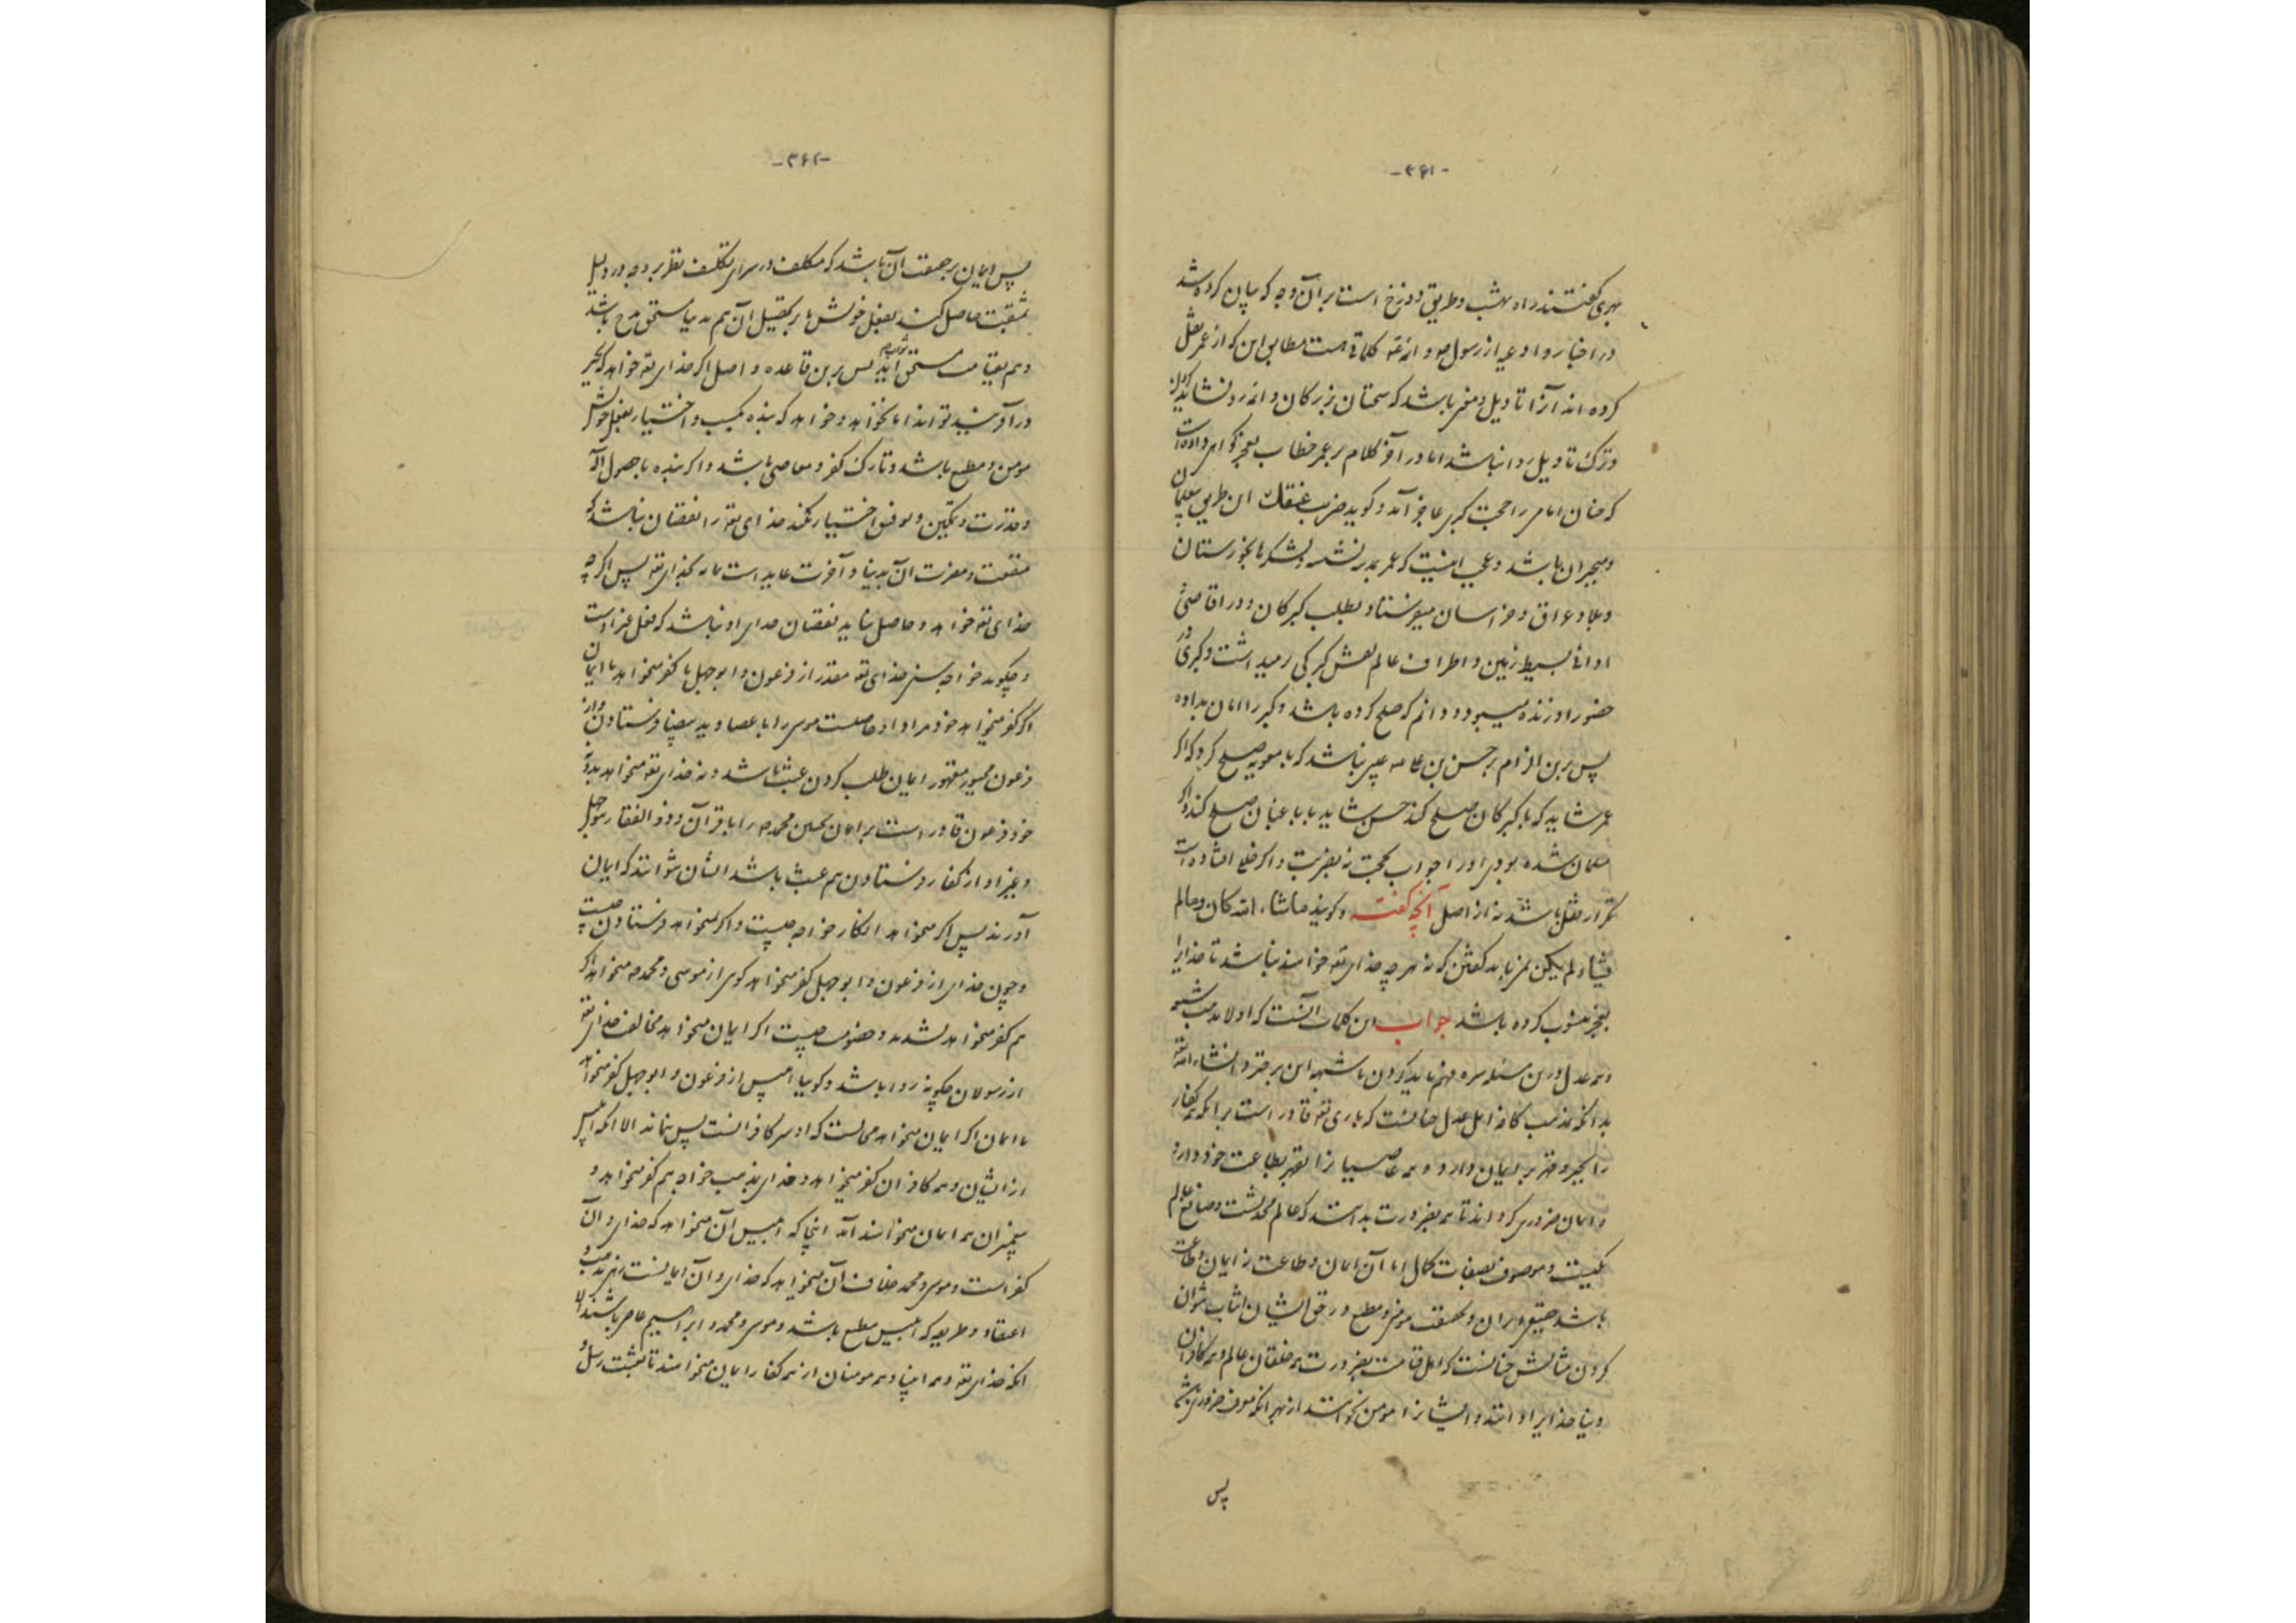 -۳۶۱-
بهری گفتند راه بهشت و طریق دوزخ است بر آن وجه که بیان کرده شد
در اخبار و ادعیه از رسول ص و ائمه کلماتی هست مطابق این که از عمر نقل
کرده اند آنرا تاویل و معنی باشد که سخنان بزرگان و ائمه رد نشاید کردن
و ترک تاویل روا نباشد اما در آخر کلام بر عمر خطاب بعجز گواهی داده است
که چنان امامی را حجت گبری عاجز آمد و گوید ضربت عنقك این طریق
و مجبران باشد و عجب اینست که عمر لشکرها بخوزستان
و بلاد عراق و خراسان میفرستاد بطلب گبرکان و در اقاصی
ادانی بسیط زمین و اطراف عالم گبرکی و گبری در
حضور او زنده و دانم که صلح کرده باشد و گبر را امان بداده
پس برین الزام بر حسن بن علی نباشد که با معویه صلح کرد که اگر
عمر شاید که با گبرکان صلح کند حسن شاید با باغیان صلح کند و اگر
مسلمان شده بودی او را جواب بحجت نه بضربت و اگر خللی افتاده است
تکرار نقل باشد نه از اصل آنچه گفته و گویند ماشاء الله کان و مالم
یشاء لم یکن نباید گفتن که نه هر چه خدای تعه خواسته نباشد تا خدایرا
بعجز منسوب کرده باشد جواب این کلمات آنست که اولا مذهب شیعه
و عدل درین مسئله فهم باید کردن تا شبهه این برخیزد انشاء الله تعه
بدانکه مذهب کافه اهل عدل چنانست که باری تعه قادر است بر آنکه همه کفار
را بجبر و قهر بر ایمان دارد و همه عاصیانرا بقهر بطاعت خود دارد
و ایمان ضروری گرداند تا همه بضرورت بدانند که عالم محدثست و صانع عالم
یکیست و موصوف بصفات کمال اما آن ایمان و طاعت نه ایمان و طاعت
باشد حقیقی و بر آن و بحقیقت مومن و مطیع در حق ایشان اثبات نتوان
کردن مثالش چنانست که اهل قیامت بضرورت همه خلقان عالم و همه کافران
دنیا خدایرا دانند و ایشانرا مومن نخوانند از بهر آنکه معرفت ضروری باشد
پس
-۳۶۲-
پس ایمان بر حقیقت آن باشد که مکلف در سرای تکلیف نظر بر وجه در دلیل
مثبت حاصل کند بفعل خویش تا بر تحصیل آن هم بدنیا مستحق مدح باشد
و هم بقیامت مستحق ثواب آید پس برین قاعده و اصل اگر خدای تعه خواهد که بجبر
در آفریند تواند اما نخواهد و خواهد که بنده بکسب و اختیار بفعل خویش
مومن و مطیع باشد و تارک کفر و معاصی باشد و اگر بنده با حصول آلة
و قدرت و تمکین و توفیق اختیار نکند خدای تعه را نقصان نباشد که
منفعت و مضرت آن بدنیا و آخرت عاید است به نه بخدای تعه پس اگر چه
خدای تعه خواهد و حاصل نیاید نقصان خدای او نباشد که فعل غیر اوست
و چگوید خواجه سنی خدای تعه مقدر از فرعون و ابوجهل با کفر میخواهد یا ایمان
اگر کفر میخواهد خود مراد او حاصلست موسی را با عصا و ید بیضا فرستادن و از
فرعون مجبور مقهور ایمان طلب کردن عبث باشد و نه خدای تعه میخواهد
خود فرعون قادر است بر ایمان همچنین محمد ص را با قرآن و ذوالفقار بر بوجهل
و غیر او از کفار فرستادن هم عبث باشد ایشان نتوانند که ایمان
آورند پس اگر میخواهد انکار خواجه چیست و اگر نمیخواهد فرستادن چیست
و چون خدای از فرعون و ابوجهل کفر میخواهد گوی از موسی و محمد چه میخواهد اگر
هم کفر میخواهد و خصومت چیست اگر ایمان میخواهد مخالفت خدای تعه
از رسولان چگونه روا باشد و گویا ابلیس از فرعون و ابوجهل کفر میخواهد
یا ایمان اگر ایمان میخواهد که او سر کافرانست پس نماند الا آنکه ابلیس
از ایشان و همه کافران کفر میخواهد و خدای بمذهب خواجه هم کفر میخواهد و
پیغمبران همه ایمان میخواستند آمد اینجا که ابلیس آن میخواهد که خدای و آن
کفر است و موسی و محمد خلاف آن میخواهد که خدای و آن ایمانست زهی مذهب و
اعتقاد و طریقه که ابلیس مطیع باشد و موسی و محمد و ابراهیم عاصی باشند الا
آنکه خدای تعه و همه انبیا و همه مومنان از همه کفار ایمان میخواستند تا بعثت رسل و